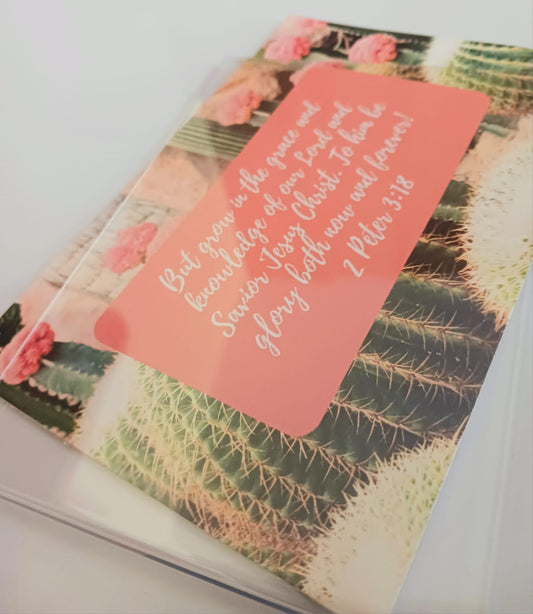 But grow in the grace and
knowledge of our Lord and
Savior Jesus Christ. To him be
glory both now and forever!
2 Peter 3:18